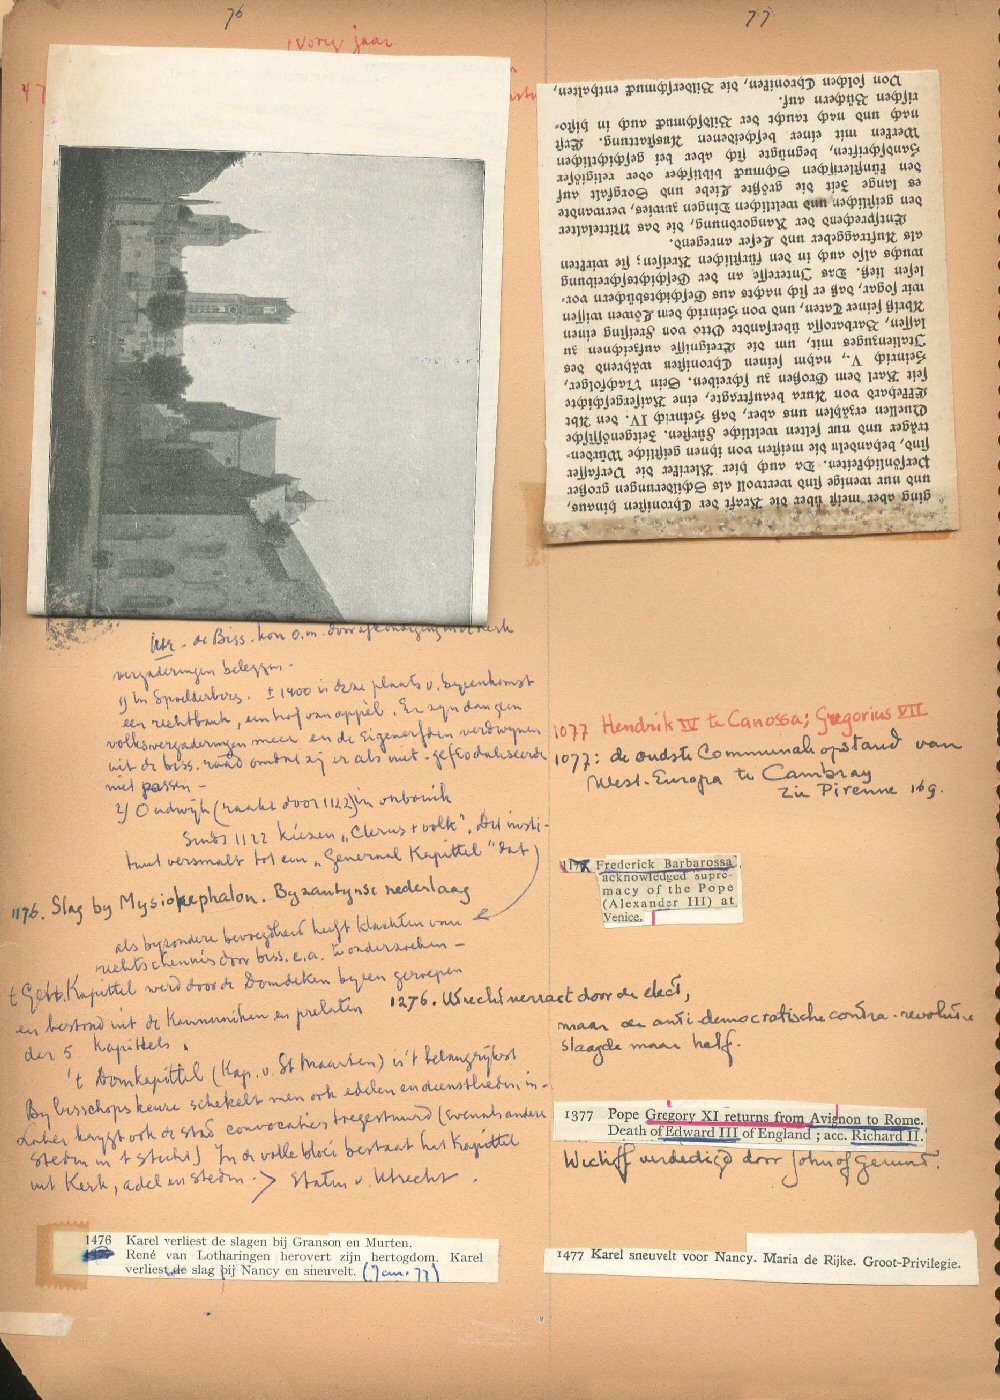 76
77
vorig jaar
47
Von solchen Chroniken, die Bilderschmuck enthalten,
rischen Büchern auf.
nach und nach taucht der Bildschmuck auch in histo-
Werken mit einer bescheidenen Ausstattung. Erst
Handschriften, begnügte sich aber bei geschichtlichen
den künstlerischen Schmuck biblischer oder religiöser
es lange Zeit die größte Liebe und Sorgfalt auf
den geistlichen und weltlichen Dingen zuwies, verwandte
Entsprechend der Rangordnung, die das Mittelalter
als Auftraggeber und Leser anregend.
wuchs also auch in den fürstlichen Kreisen; sie wirkten
lesen ließ. Das Interesse an der Geschichtsschreibung
wir sogar, daß er sich nachts aus Geschichtsbüchern vor-
Abriß seiner Taten, und von Heinrich dem Löwen wissen
lassen, Barbarossa übersandte Otto von Freising einen
Italienzuges mit, um die Ereignisse aufzeichnen zu
Heinrich V., nahm seinen Chronisten während des
seit Karl dem Großen zu schreiben. Sein Nachfolger,
Ekkehard von Aura beauftragte, eine Kaisergeschichte
Quellen erzählen uns aber, daß Heinrich IV. den Abt
träger und nur selten weltliche Fürsten. Zeitgenössische
sind, behandeln die meisten von ihnen geistliche Würden-
Persönlichkeiten. Da auch hier Kleriker die Verfasser
und nur wenige sind wertvoll als Schilderungen großer
ging aber meist über die Kraft der Chronisten hinaus,
de Biss. kon o.m. door afkondiging in de kerk
vergaderingen beleggen -
1) in Spoelderberg. ± 1400 is deze plaats v. byeenkomst
een rechtbank, een hof van appel. Er zyn dan geen
volksvergaderingen meer en de Eigenerfden verdwynen
uit de biss. raad omdat zij er als niet-gefeodaliseerde
niet passen -
2) Oudwijk (raakt door 1122) in onbruik
Sinds 1122 kiezen „Clerus + volk". Dit insti-
tuut versmalt tot een „Generaal Kapittel" dat
1176. Slag by Mysiokephalon. Byzantynse nederlaag
als byzondere bevoegdheid heeft klachten van
rechtschennis door biss. e.a. te onderzoeken -
't Gen. Kapittel werd door de Domdeken byeen geroepen
en bestond uit de Kannuniken en prelaten
der 5 Kapittels.
't Domkapittel (Kap. v. St Maarten) is 't belangrijkst
By bisschopskeuze schekelt men ook edelen en dienstlieden in -
Later krygt ook de stad convocaties toegestuurd (Evenals andere
steden in 't sticht) In de volle bloei bestaat het Kapittel
uit Kerk, adel en steden -> Staten v. Utrecht.
1476 Karel verliest de slagen bij Granson en Murten.
René van Lotharingen herovert zijn hertogdom. Karel
verliest de slag bij Nancy en sneuvelt. (Jan. 77)
1077 Hendrik IV te Canossa; Gregorius VII
1077: de oudste Communale opstand van
West-Europa te Cambray
zie Pirenne 169.
Frederick Barbarossa
acknowledged supre-
macy of the Pope
(Alexander III) at
Venice.
1276. Utrecht verrast door de elect,
maar de anti democratische contra-revolutie
slaagde maar half.
1377 Pope Gregory XI returns from Avignon to Rome.
Death of Edward III of England; acc. Richard II.
Wicliff verdedigd door John of Gaunt.
1477 Karel sneuvelt voor Nancy. Maria de Rijke. Groot-Privilegie.